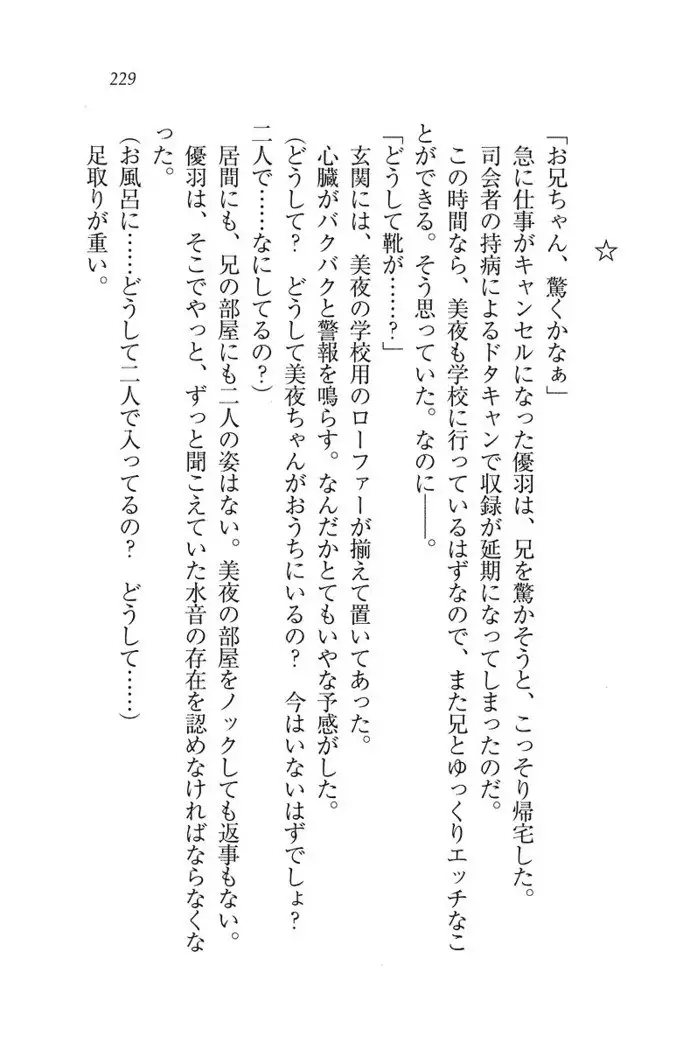 229
☆
「お兄ちゃん、驚くかなぁ」
急に仕事がキャンセルになった優羽は、兄を驚かそうと、こっそり帰宅した。
司会者の持病によるドタキャンで収録が延期になってしまったのだ。
この時間なら、美夜も学校に行っているはずなので、また兄とゆっくりエッチなこ
とができる。そう思っていた。なのに――。
「どうして靴が……?」
玄関には、美夜の学校用のローファーが揃えて置いてあった。
心臓がバクバクと警報を鳴らす。なんだかとてもいやな予感がした。
(どうして? どうして美夜ちゃんがおうちにいるの? 今はいないはずでしょ?
二人で……なにしてるの?)
居間にも、兄の部屋にも二人の姿はない。美夜の部屋をノックしても返事もない。
優羽は、そこでやっと、ずっと聞こえていた水音の存在を認めなければならなくな
った。
(お風呂に……どうして二人で入ってるの? どうして……)
足取りが重い。